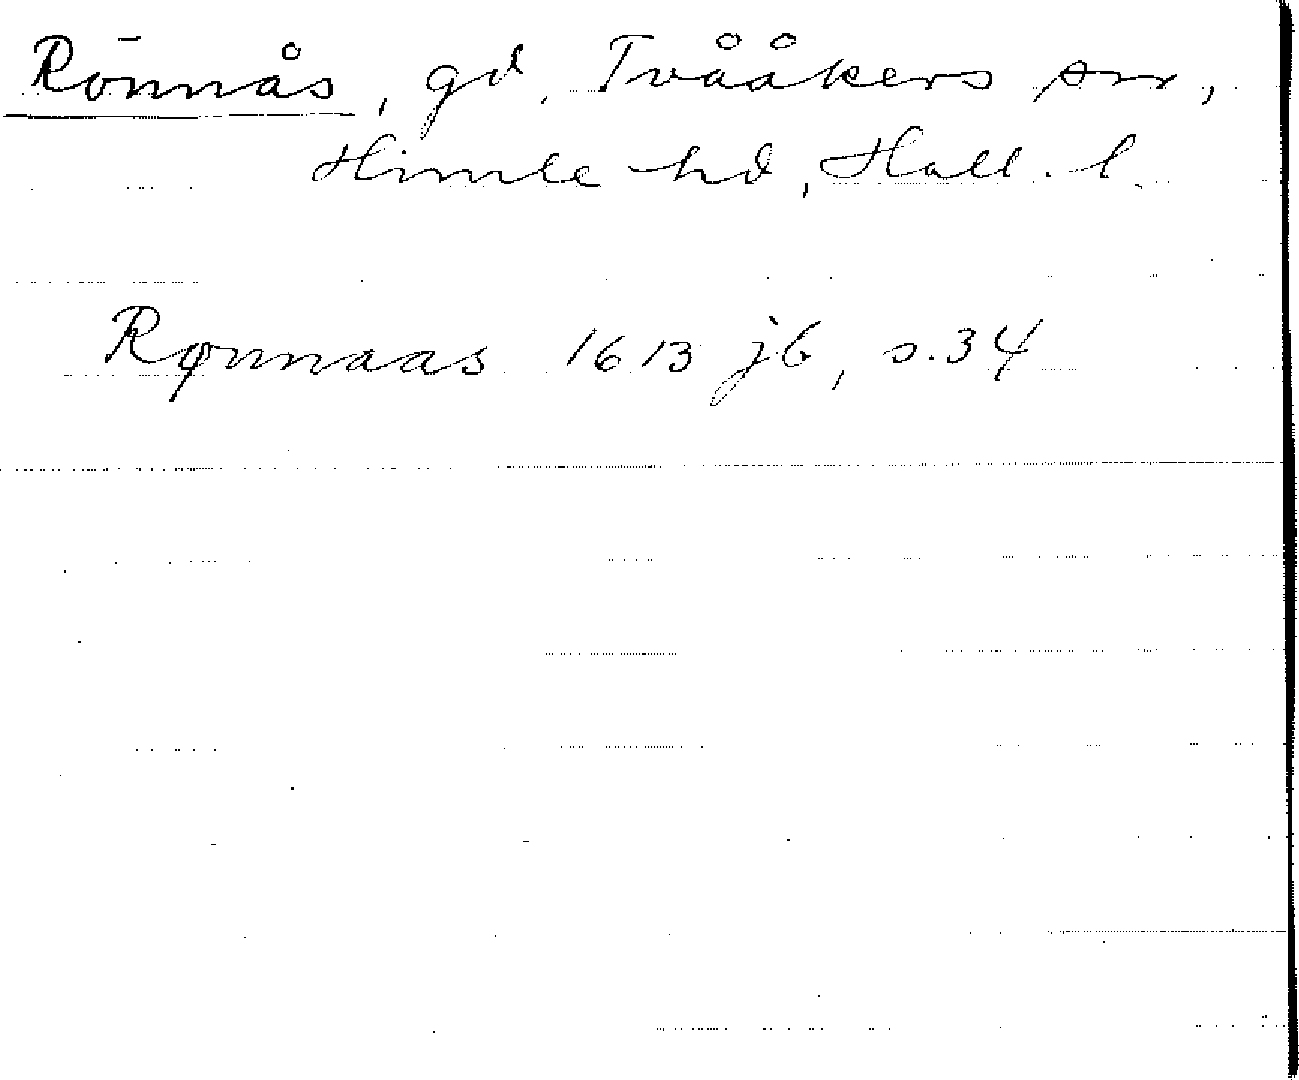 Rönnås, gd, Tvååkers sn,
Himle hd, Hall. l.
Rønnaas 1613 jb, s. 34